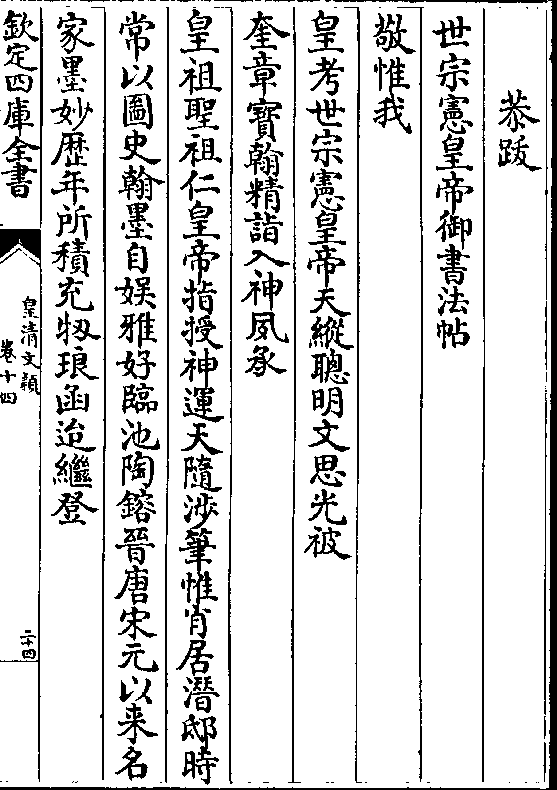 恭跋
世宗憲皇帝御書法帖
敬惟我
皇考世宗憲皇帝天縱聰明文思光被
奎章寳翰精詣入神夙承
皇祖聖祖仁皇帝指授神運天隨涉筆惟肖居潛邸時
常以圖史翰墨自娛雅好臨池陶鎔晉唐宋元以来名
家墨妙歴年所積充牣琅函迨繼登
欽定四庫全書
皇清文穎
卷十四
二十四